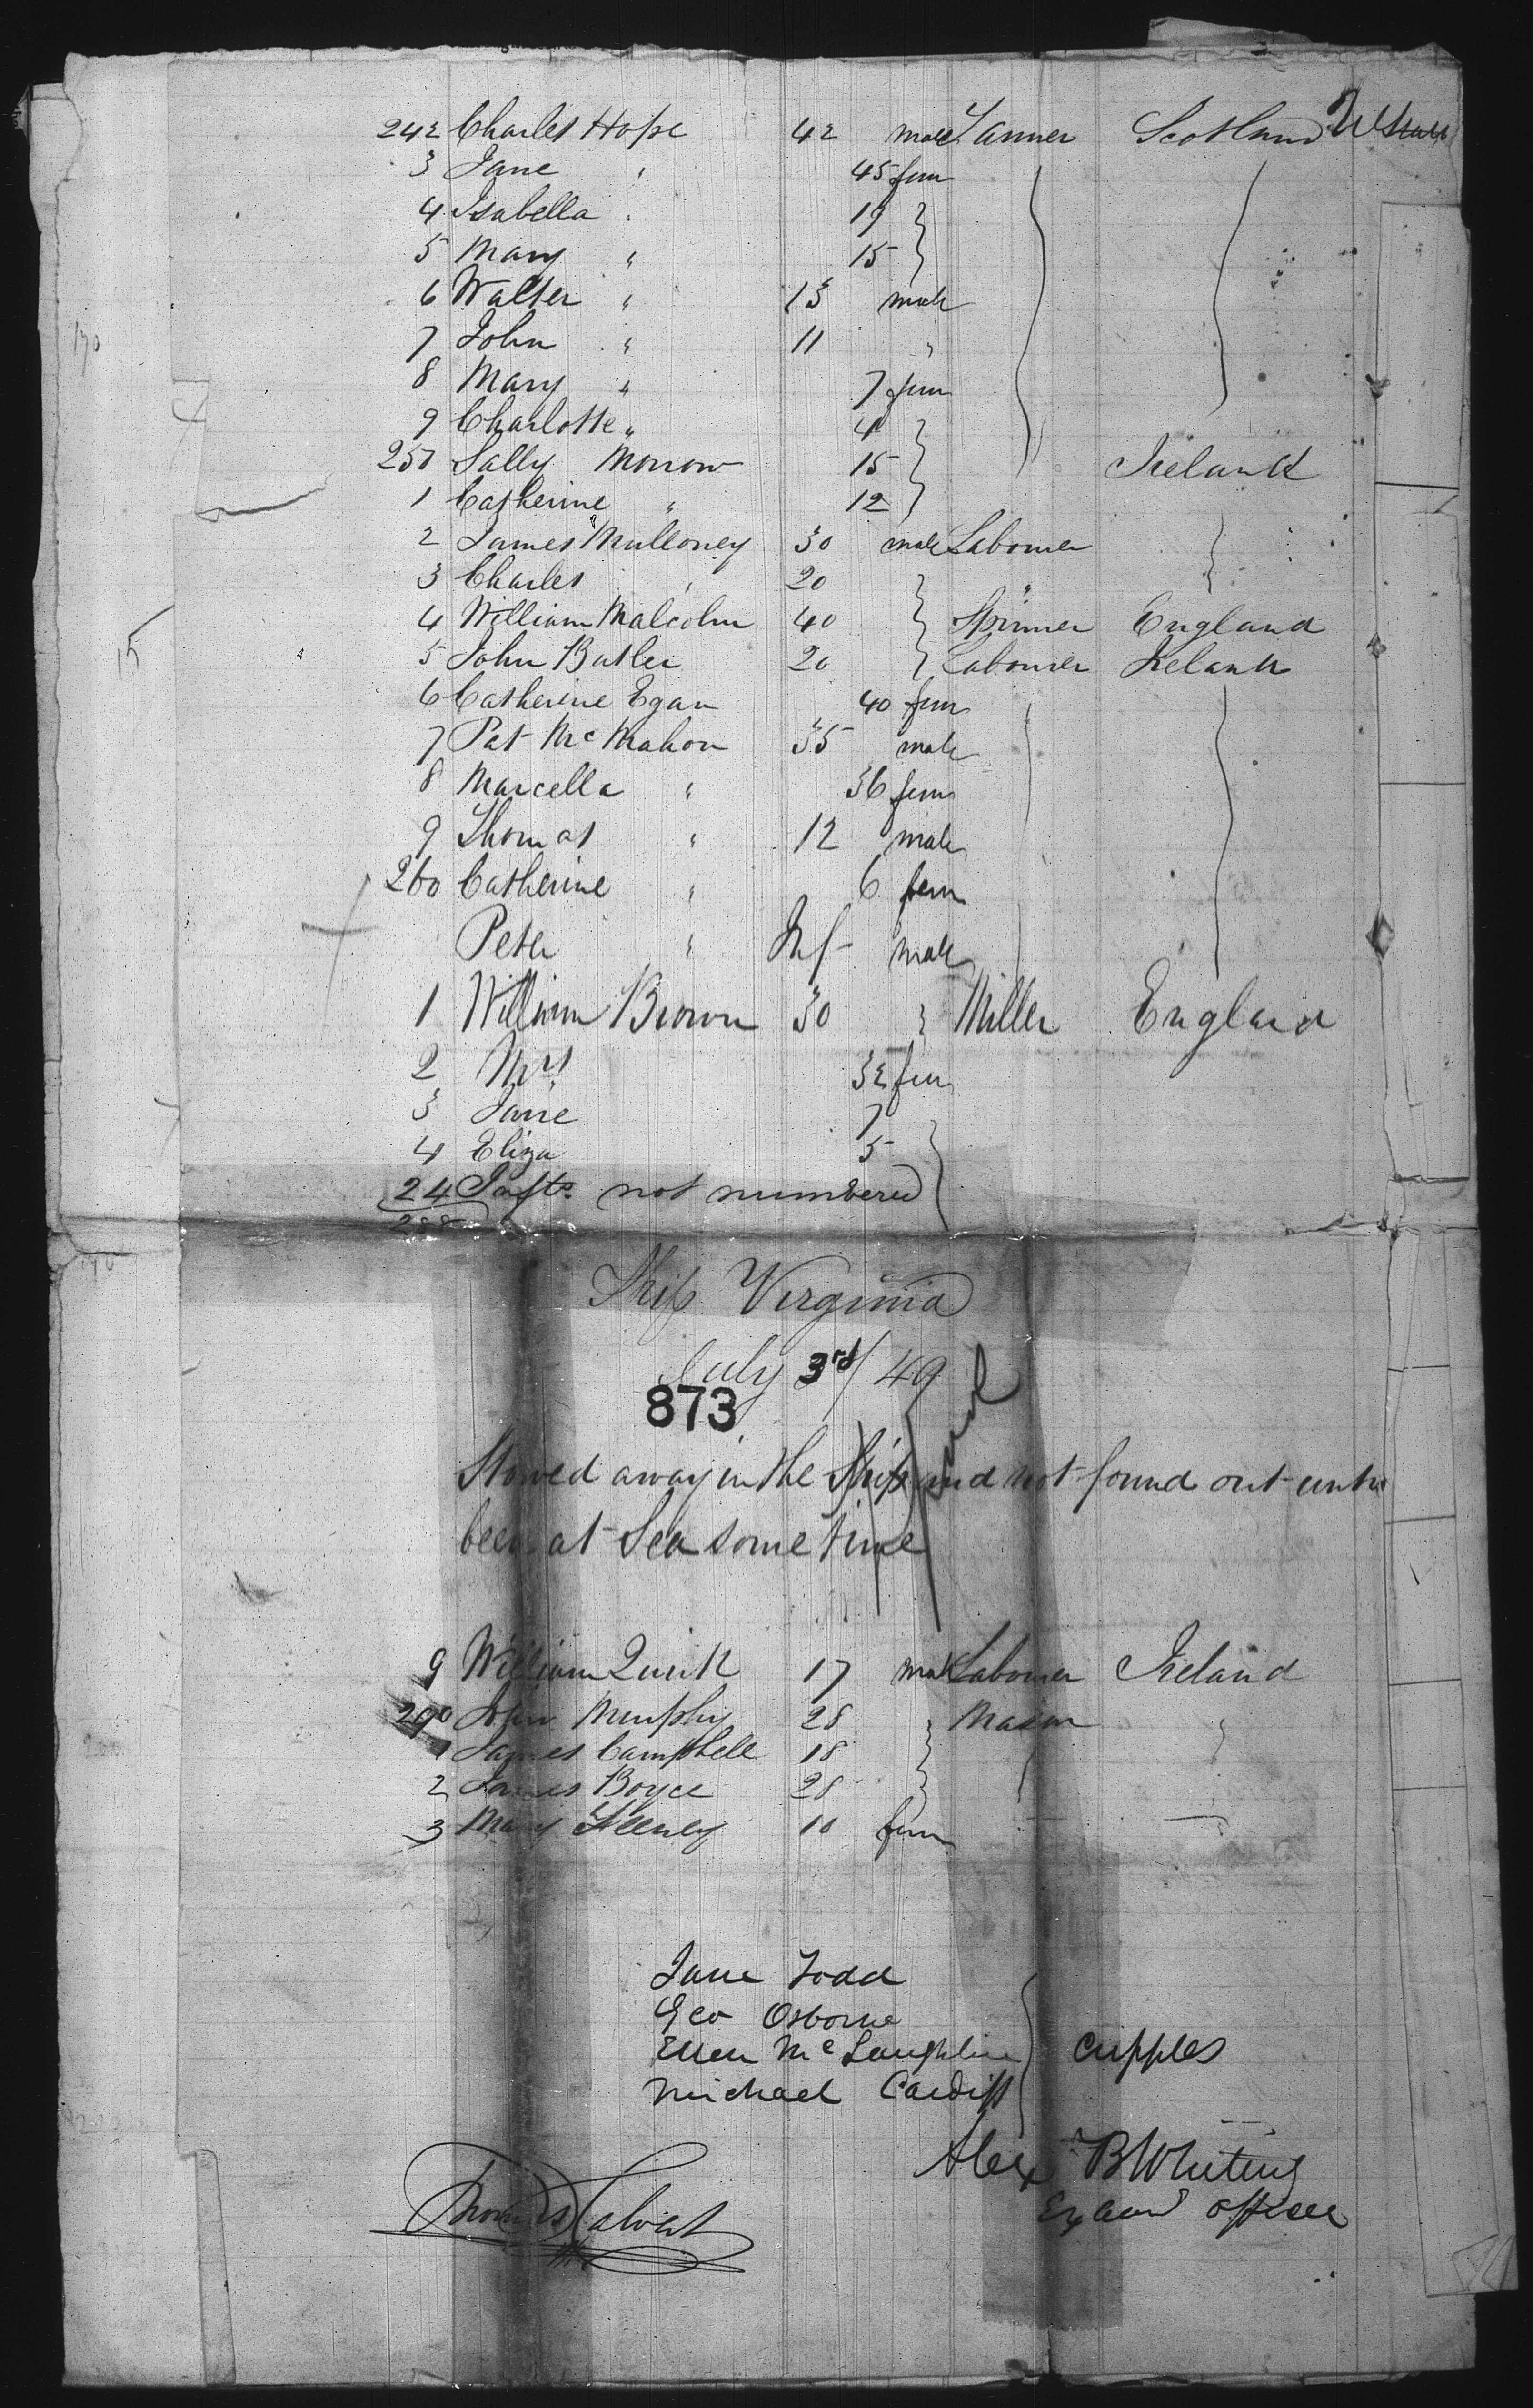 242 Charles Hope 42 male Tanner Scotland U States
3 Jane " 45 fem
4 Isabella " 19
5 Mary " 15
6 Walter " 13 male
7 John " 11 "
8 Mary " 7 fem
9 Charlotte " 4
250 Sally Morrow 15 Ireland
1 Catherine " 12
2 James Mulloney 30 male Labourer
3 Charles " 20 "
4 William Malcolm 40 Spinner England
5 John Butler 20 Labourer Ireland
6 Catherine Egan 40 fem
7 Pat McMahon 35 male
8 Marcella " 36 fem
9 Thomas " 12 male
260 Catherine " 6 fem
Peter " Inf male
1 William Brown 30 " Miller England
2 Mrs 32 fem
3 Jane 7
4 Eliza 5
24 Infts not numbered
288
Ship Virginia
July 3rd / 49
873
Stowed away in the Ship and not found out until
been at Sea some time
9 William Quirk 17 male Labourer Ireland
290 John Murphy 28 " Mason "
1 James Campbell 18
2 James Boyce 28
3 Mary 10 fem
Jane Todd
Geo Osborne
Ellen McLaughlin cripples
Michael Cardiff
Alex B Whiting
officer
Thomas Calvert